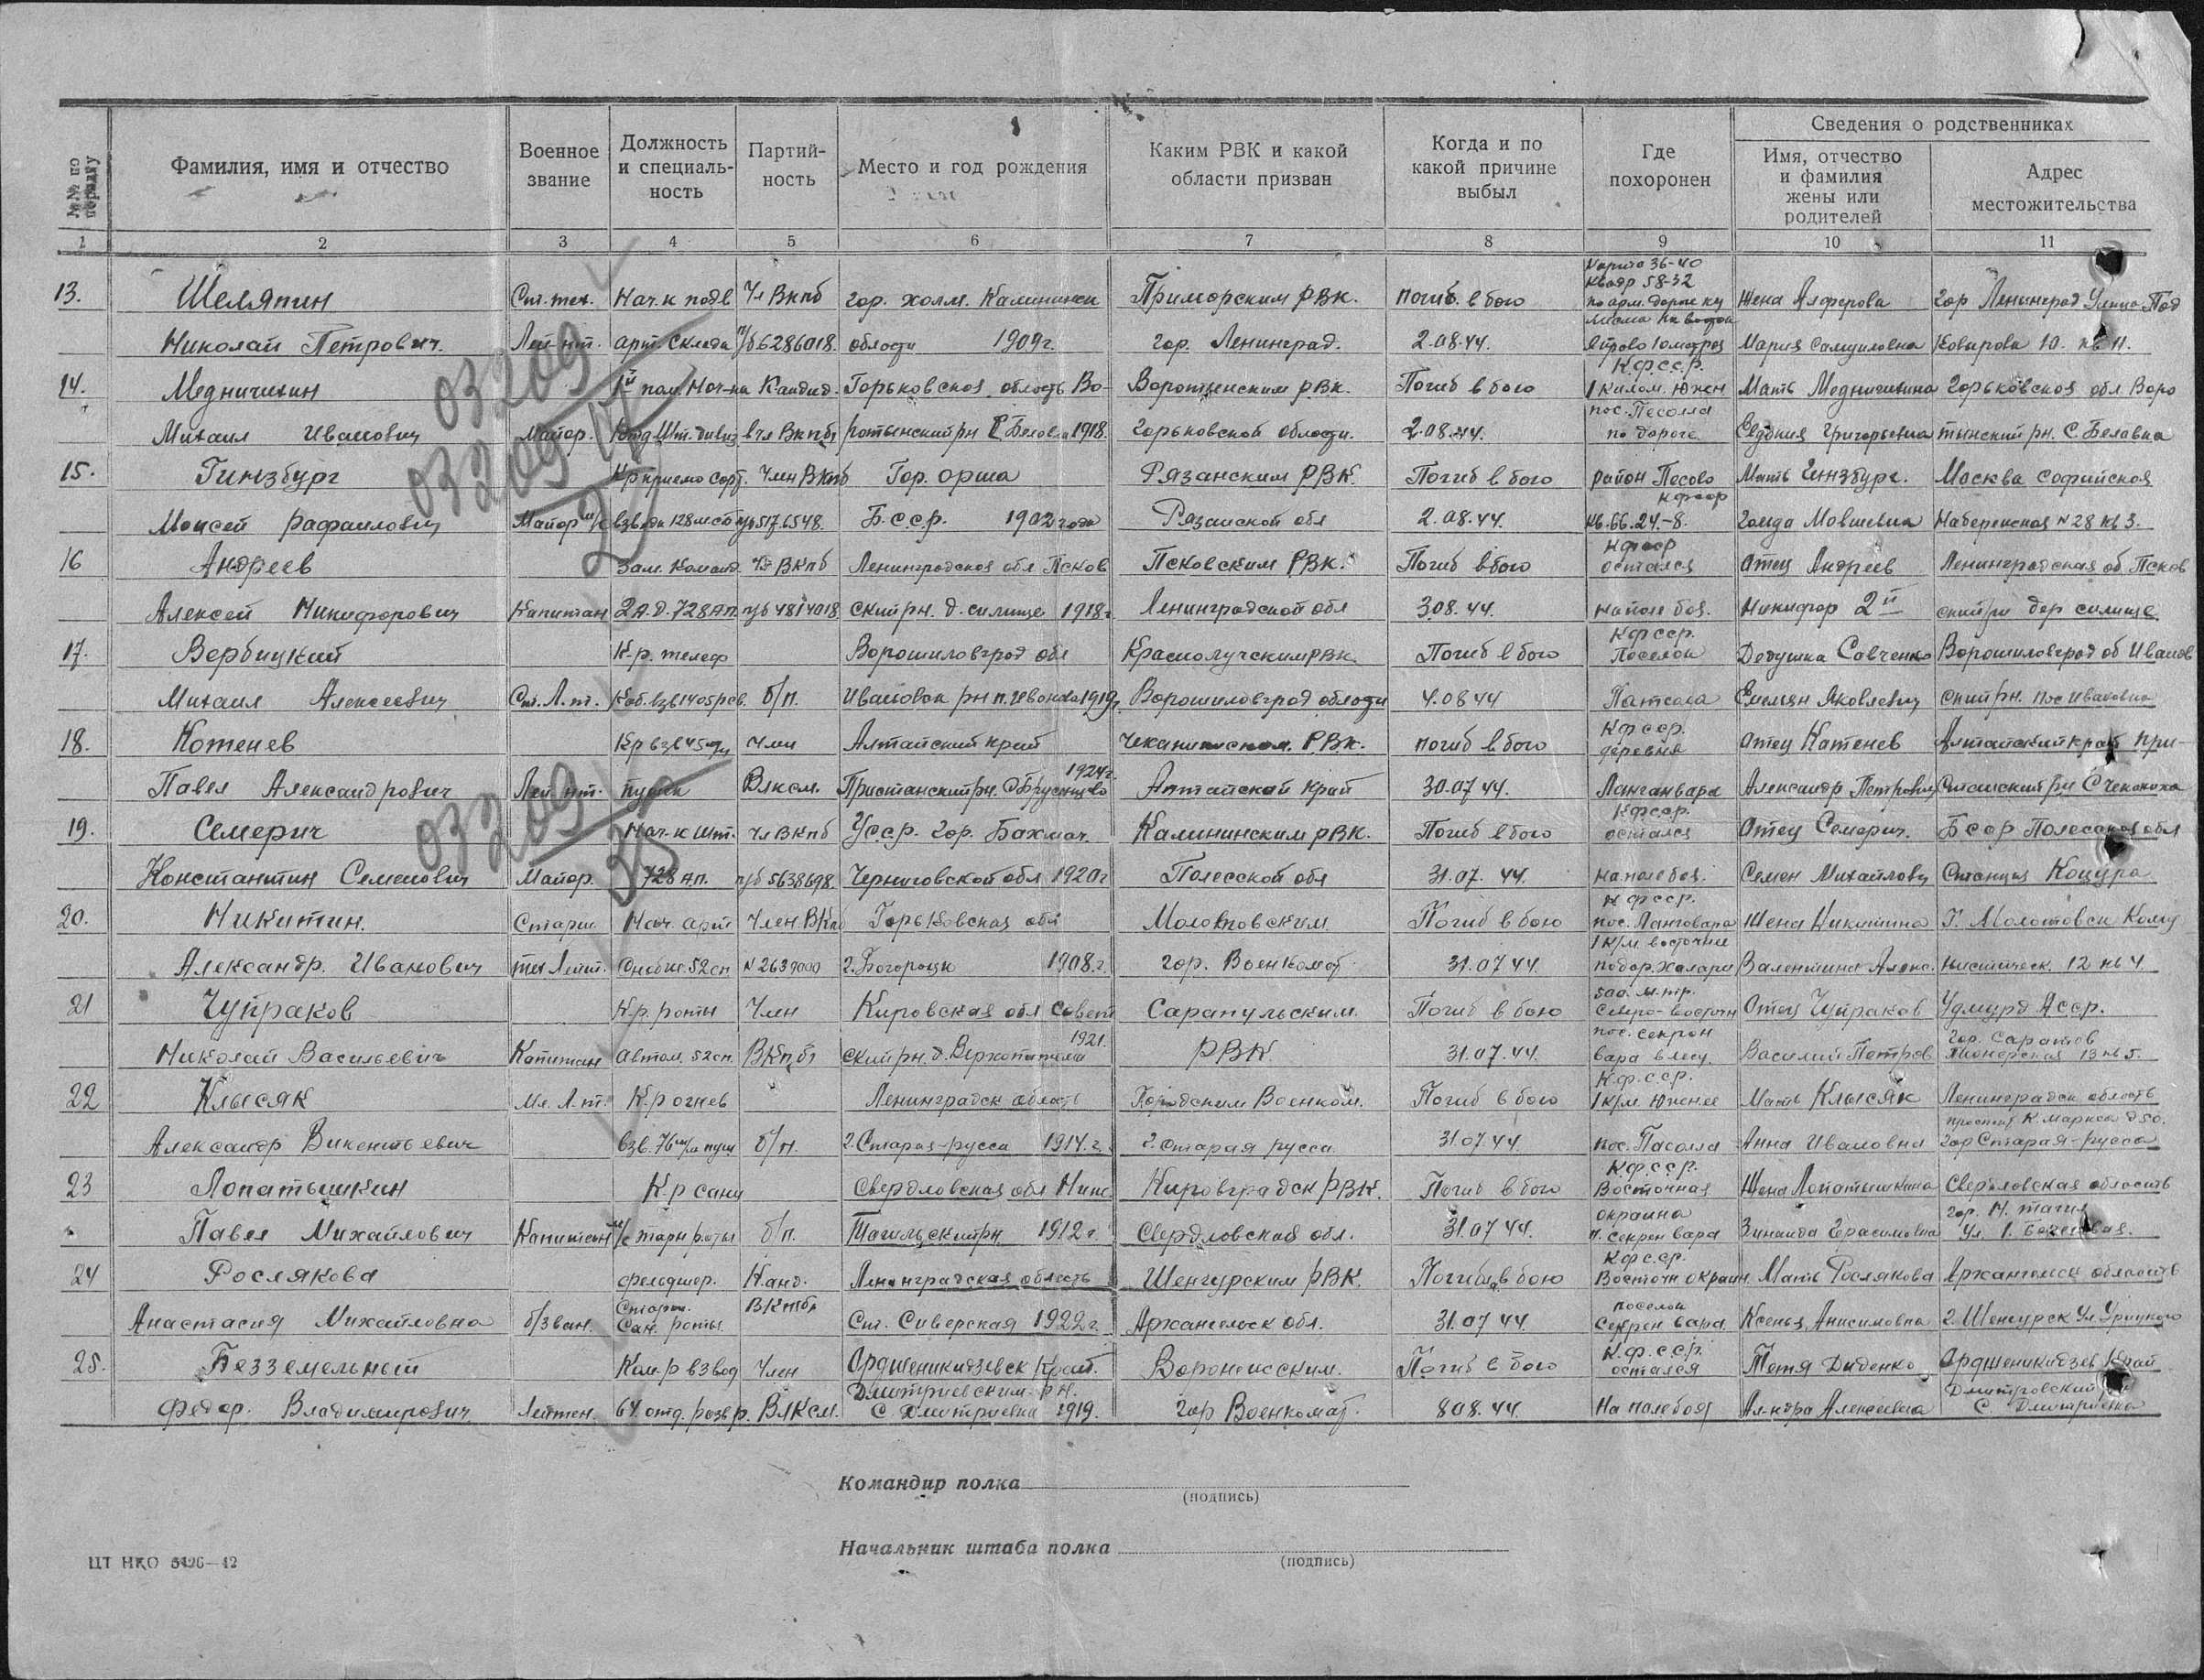 №№ по порядку
Фамилия, имя и отчество
Военное звание
Должность и специальность
Партийность
Место и год рождения
Каким РВК и какой области призван
Когда и по какой причине выбыл
Где похоронен
Сведения о родственниках
Имя, отчество и фамилия жены или родителей
Адрес местожительства
1 2 3 4 5 6 7 8 9 10 11
13. Шеляпин Ст. тех. Нач.к подв Чл Вкпб гор. холм. Калинински Приморским РВК. погиб. в бою Квадр 58-32 Жена Алферова гор Ленинград Улица Под
Николай Петрович. Лей-нт. арт. склада п/б 6286018. области 1909 г. гор. Ленинград. 2.08.44. Мария Самуиловна Коварова 10. кв 11.
14. Медничихин пом. Нач-ка Кандид. Горьковская область Во- Воротынским РВк. Погиб в бою К.ф.с.с.р. 1 килом. Южн Мать Медничихина Горьковская обл Воро
Михаил Иванович Майор. в чл Вкпб ротынский рн 1918. Горьковской области. 2.08.44. пос. Песолла по дороге Евдокия Григорьевна тынский рн. С. Белавка
15. Гинзбург Член ВКпб Гор. орша Рязанским РВК. Погиб в бою район Песово Мать Гинзбург. Москва Софийская
Моисей Рафаилович Майор м/с взвода 128 мсб п/б 5176548. Б.с.с.р. 1902 года Рязанской обл 2.08.44. кв. 66.24.-8. Голда Мовшевна Набережная N 28 кв 3.
16 Андреев Зам. Команд. Чл ВКпб Ленинградская обл Псков Псковским РВК. Погиб в бою Кфсср остался Отец Андреев Ленинградская об Псков
Алексей Никифорович Капитан 2 А.Д. 728 АП. п/б 4814018 ский рн. д. силище 1918 г. Ленинградской обл 3.08.44. на поле боя. Никифор 2й ский рн дер силище.
17. Вербицкий К.р. телеф Ворошиловград обл Краснолучским РВК Погиб в бою Кфсср. Поселок Дедушка Савченко Ворошиловград об Иванов
Михаил Алексеевич Ст. Л.т. б/п. Ивановск рн п. Ивановка 1919 г. Ворошиловград области 4.08 44 Патсола Емельян Яковлевич ский рн. пос Ивановка
18. Котенев Кр взв 45 м/м Член Алтайский край РВк. погиб в бою Кфсср. деревня Отец Катенев Алтайский край При-
Павел Александрович Лей-нт. пушек Влксм. Пристанский рн. 1924 г. Алтайской край 30.07 44. Ланганвара Александр Петрович станский рн С Чеканиха
19. Семерич Нач-к шт. Чл ВКпб Усср. гор. Бахмач. Калининским РВК. Погиб в бою Кфсср. остался Отец Семерич. Бсср Полесская обл
Константин Семенович Майор. 728 АП. п/б 5638698. Черниговской обл 1920 г Полесской обл 31.07. 44. на поле боя. Семен Михайлович Станция Коцура
20. Никитин. Старш Нач. арт Член ВКпб Горьковская обл Молотовским. Погиб в бою Кфсср. пос. Лангвара Жена Никитина Г. Молотовск Комму
Александр. Иванович тех Лейт. Снабже. 52 сп N 2639000 г. Богородск 1908. г. гор. Военкомат 31.07 44. 1 к/м восточнее Валентина Алекс. нистическ. 12 кв 4.
21 Чупраков К.р. роты Член Кировская обл Совет Сарапульским. Погиб в бою 500 м-тр. Северо-восточн Отец Чупраков Удмурд Асср.
Николай Васильевич Капитан автом. 52 сп. ВКпб ский рн. 1921. РВК. 31.07.44. пос. секрен вара в лесу. Василий Петров. Пионерская 13 кв 5.
22 Клысяк Мл. Л.т. К.р огнев Ленинградск область Городским Военком. Погиб в бою К.ф.с.с.р. 1 к/м Южнее Мать Клысяк Ленинградск область
Александр Викентьевич взв. 76 м/м пуш б/п. г. Старая-русса 1914. г. г. старая русса 31.07 44. пос. Пасолла Анна Ивановна проспект К. Маркса д 50. гор Старая-русса
23 Лопатышкин К.р сани Свердловская обл Ниже Кировградск РВК. Погиб в бою К.ф.с.с.р. Восточная Жена Лопатышкина Свердловская область
Павел Михайлович Капитан м/с тарн роты б/п. Тагильский рн 1912 г. Свердловская обл. 31.07 44. окраина п. секрен вара Зинаида Герасимовна гор. Н. Тагил
24 Рослякова фельдшер. Канд. Ленинградская область Шенгурским РВК. Погибла в бою К.ф.с.с.р. Восточн окраин. Мать Рослякова Архангельск область
Анастасия Михайловна б/зван. Старш. Сан. роты ВКпб Ст. Сиверская 1922 г. Архангельск обл. 31.07 44. поселок секрен вара. Ксенья Анисимовна г. Шенгурск ул. Урицкого
25. Безземельный Ком.р взвод Член Орджоникидзевск Край. Воронежским. Погиб в бою К.ф.с.с.р. остался Тетя Диденко Орджоникидзев Край
Федор. Владимирович Лейтен. 64 отд. разв р. ВЛКСМ. Дмитриевским рн. С. Дмитриевка 1919. гор Военкомат. 8 08. 44. На поле боя Ал-ндра Алексеевна Дмитровский рн С. Дмитриевка
03209
03209
03209
Командир полка
(подпись)
Начальник штаба полка
(подпись)
ЦТ НКО 5426—42